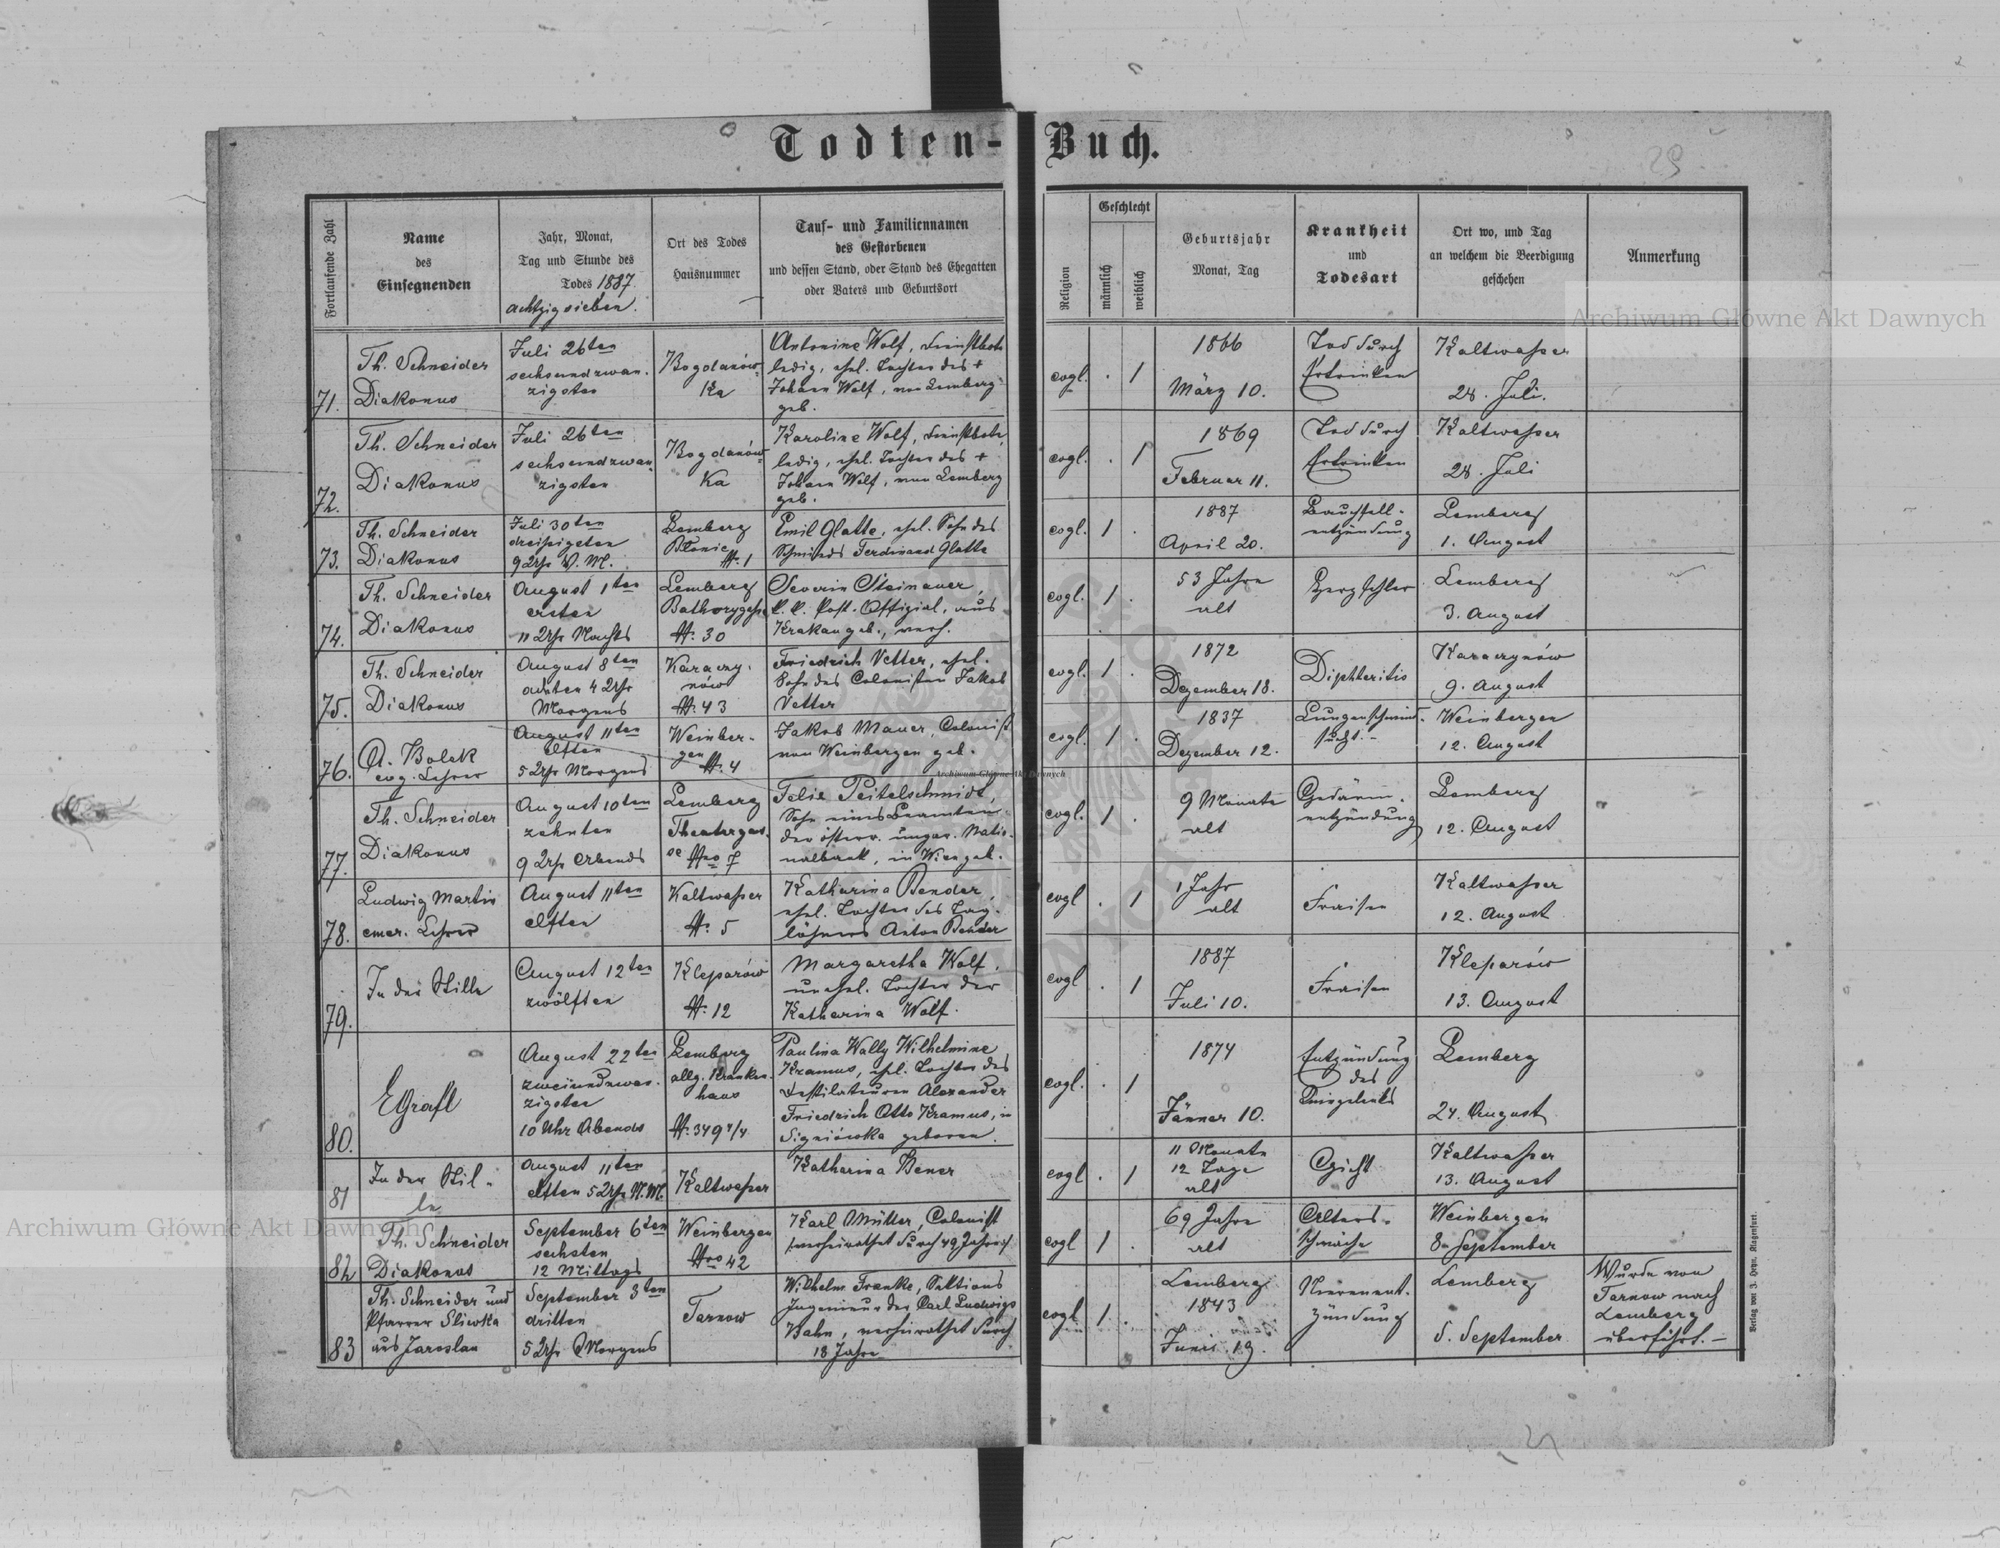 Todten-Buch.
29
Fortlaufende Zahl
Name
des
Einsegnenden
Jahr, Monat,
Tag und Stunde des
Todes 1887.
achtzigsieben.
Ort des Todes
Hausnummer
Tauf- und Familiennamen
des Gestorbenen
und dessen Stand, oder Stand des Ehegatten
oder Vaters und Geburtsort
Religion
Geschlecht
männlich
weiblich
Geburtsjahr
Monat, Tag
Krankheit
und
Todesart
Ort wo, und Tag
an welchem die Beerdigung
geschehen
Anmerkung
71.
Th. Schneider
Diakonus
Juli 26ten
sechsundzwan-
zigsten
Bogdanów-
ka
Antonine Wolf, Dienstbote
ledig, ehel. Tochter des +
Johann Wolf, von Lemberg
geb.
evgl. . 1
1866
März 10.
Tod durch
Ertrinken
Kaltwasser
28. Juli.
72.
Th. Schneider
Diakonus
Juli 26ten
sechsundzwan-
zigsten
Bogdanów-
ka
Karoline Wolf, Dienstbote,
ledig, ehel. Tochter des +
Johann Wolf, von Lemberg
geb.
evgl. . 1
1869
Februar 11.
Tod durch
Ertrinken
Kaltwasser
28. Juli
73.
Th. Schneider
Diakonus
Juli 30ten
dreissigsten
9 Uhr V. M.
Lemberg
Błonie
N. 1
Emil Glatte, ehel. Sohn des
Schmieds Ferdinand Glatte
evgl. 1 .
1887
April 20.
Bauchfell-
entzündung
Lemberg
1. August
74.
Th. Schneider
Diakonus
August 1ten
ersten
11 Uhr Nachts
Lemberg
Bathorygasse
N. 30
Severin Steinauer,
k. k. Post-Offizial, aus
Krakau geb., verh.
evgl. 1 .
53 Jahre
alt
Herzfehler
Lemberg
3. August
75.
Th. Schneider
Diakonus
August 8ten
achten 4 Uhr
Morgens
Karaczy-
nów
N. 43
Friedrich Vetter, ehel.
Sohn des Colonisten Jakob
Vetter
evgl. 1 .
1872
Dezember 18.
Diphteritis
Karaczynów
9. August
76.
A. Bolek
evg. Lehrer
August 11ten
elften
5 Uhr Morgens
Weinber-
gen
N. 4
Jakob Mauer, Colonist
von Weinbergen geb.
evgl. 1 .
1837
Dezember 12.
Lungenschwind-
sucht.-
Weinbergen
12. August
77.
Th. Schneider
Diakonus
August 10ten
zehnten
9 Uhr Abends
Lemberg
Theatergas-
se Nro 7
Felix Peitelschmidt,
Sohn eines Beamten
der österr. ungar. Natio-
nalbank, in Wien geb.
evgl. 1 .
9 Monate
alt
Gedärm-
entzündung
Lemberg
12. August
78.
Ludwig Martin
emer. Lehrer
August 11ten
elften
Kaltwasser
N. 5
Katharina Bender,
ehel. Tochter des Tag-
löhners Anton Bender
evgl . 1
1 Jahr
alt
Fraisen
Kaltwasser
12. August
79.
In der Stille
August 12ten
zwölften
Kleparów
N. 12
Margaretha Wolf,
unehel. Tochter der
Katharina Wolf.
evgl . 1
1887
Juli 10.
Fraisen
Kleparów
13. August
80.
EGrafl
August 22ten
zweiundzwan-
zigsten
10 Uhr Abends
Lemberg
allg. Kranken-
haus
Paulina Wally Wilhelmine
Kramus, ehel. Tochter des
Destilateuren Alexander
Friedrich Otto Kramus, in
Signiówka geboren.
evgl. . 1
1874
Jänner 10.
Entzündung
des
Lemberg
24. August
81
In der Stil-
le
August 11ten
elften 5 Uhr N. M.
Kaltwasser
Katharina Bener
evgl . 1
11 Monate
12 Tage
alt
Gicht
Kaltwasser
13. August
82
Th. Schneider
Diakonus
September 6ten
sechsten
12 Mittags
Weinbergen
Nro 42
Karl Müller, Colonist
(verheirathet durch 49 Jahre)
evgl 1 .
69 Jahre
alt
Alters-
schwäche
Weinbergen
8. September
83
Th. Schneider und
Pfarrer Sliwka
aus Jaroslau
September 3ten
dritten
5 Uhr Morgens
Tarnow
Wilhelm Franke, Sektions
Ingenieur der Carl Ludwigs
Bahn, verheirathet durch
18 Jahre
evgl 1 .
Lemberg
1843
Juni 19.
Nierenent-
zündung
Lemberg
5. September
Wurde von
Tarnow nach
Lemberg
überführt.-
Verlag von J. Heyn, Klagenfurt.
Archiwum Główne Akt Dawnych
Archiwum Główne Akt Dawnych
Archiwum Główne Akt Dawnych